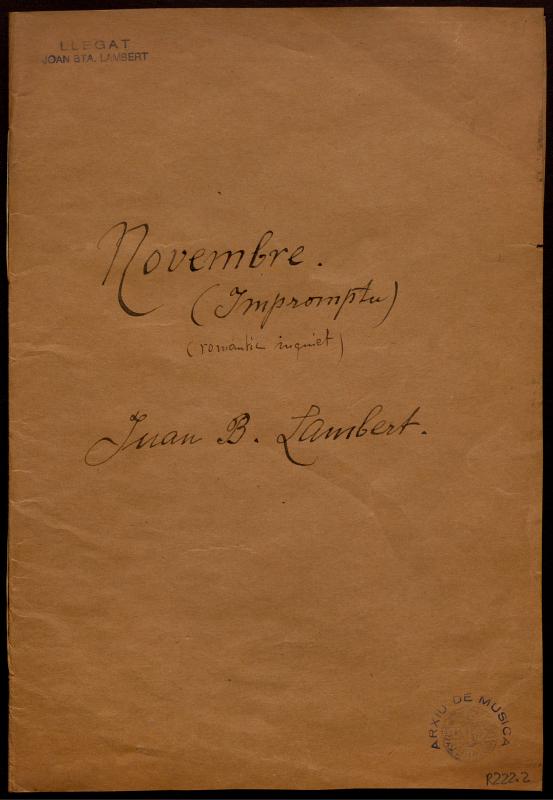 LLEGAT
JOAN BTA. LAMBERT
Novembre.
(Impromptu)
(romantic inquiet)
Juan B. Lambert.
ARXIU DE MUSICA
R222.2